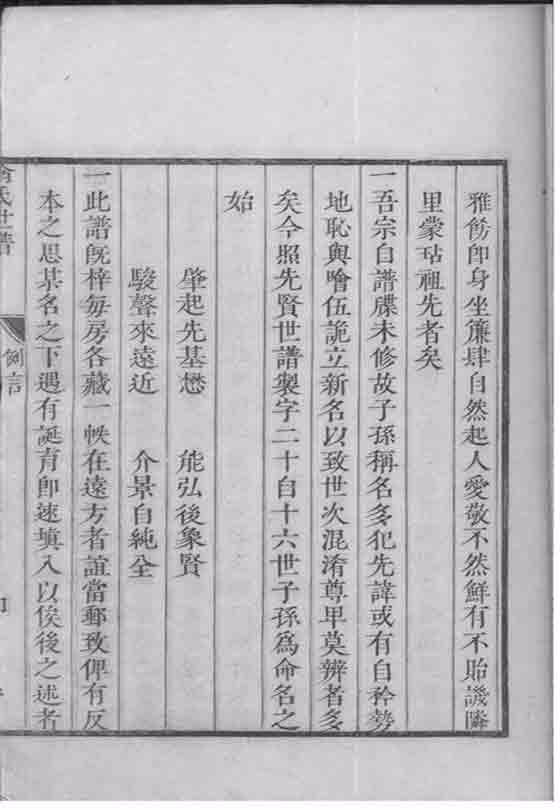 雅飭卽身坐簾肆自然起人愛敬不然鮮有不貽譏隣
里蒙玷祖先者矣
一吾宗自譜牒未修故子孫稱名多犯先諱或有自矜勢
地恥與噲伍詭立新名以致世次混淆尊卑莫辨者多
矣今照先賢世譜製字二十自十六世子孫爲命名之
始
肇起先基懋 能弘後象賢
駿聲來遠近 介景自純全
一此譜旣梓每房各藏一帙在遠方者誼當郵致俾有反
本之思某名之下遇有誕育卽速塡入以俟後之述者
氏世譜 例言